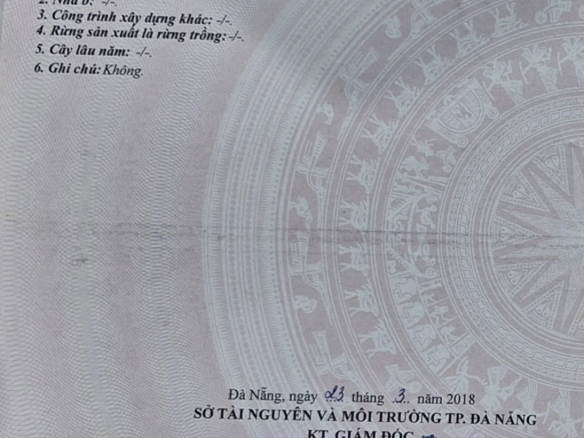 2. Nhà ở: -/-.
3. Công trình xây dựng khác: -/-.
4. Rừng sản xuất là rừng trồng: -/-.
5. Cây lâu năm: -/-.
6. Ghi chú: Không.
Đà Nẵng, ngày 23 tháng 3 năm 2018
SỞ TÀI NGUYÊN VÀ MÔI TRƯỜNG TP. ĐÀ NẴNG
KT. GIÁM ĐỐC